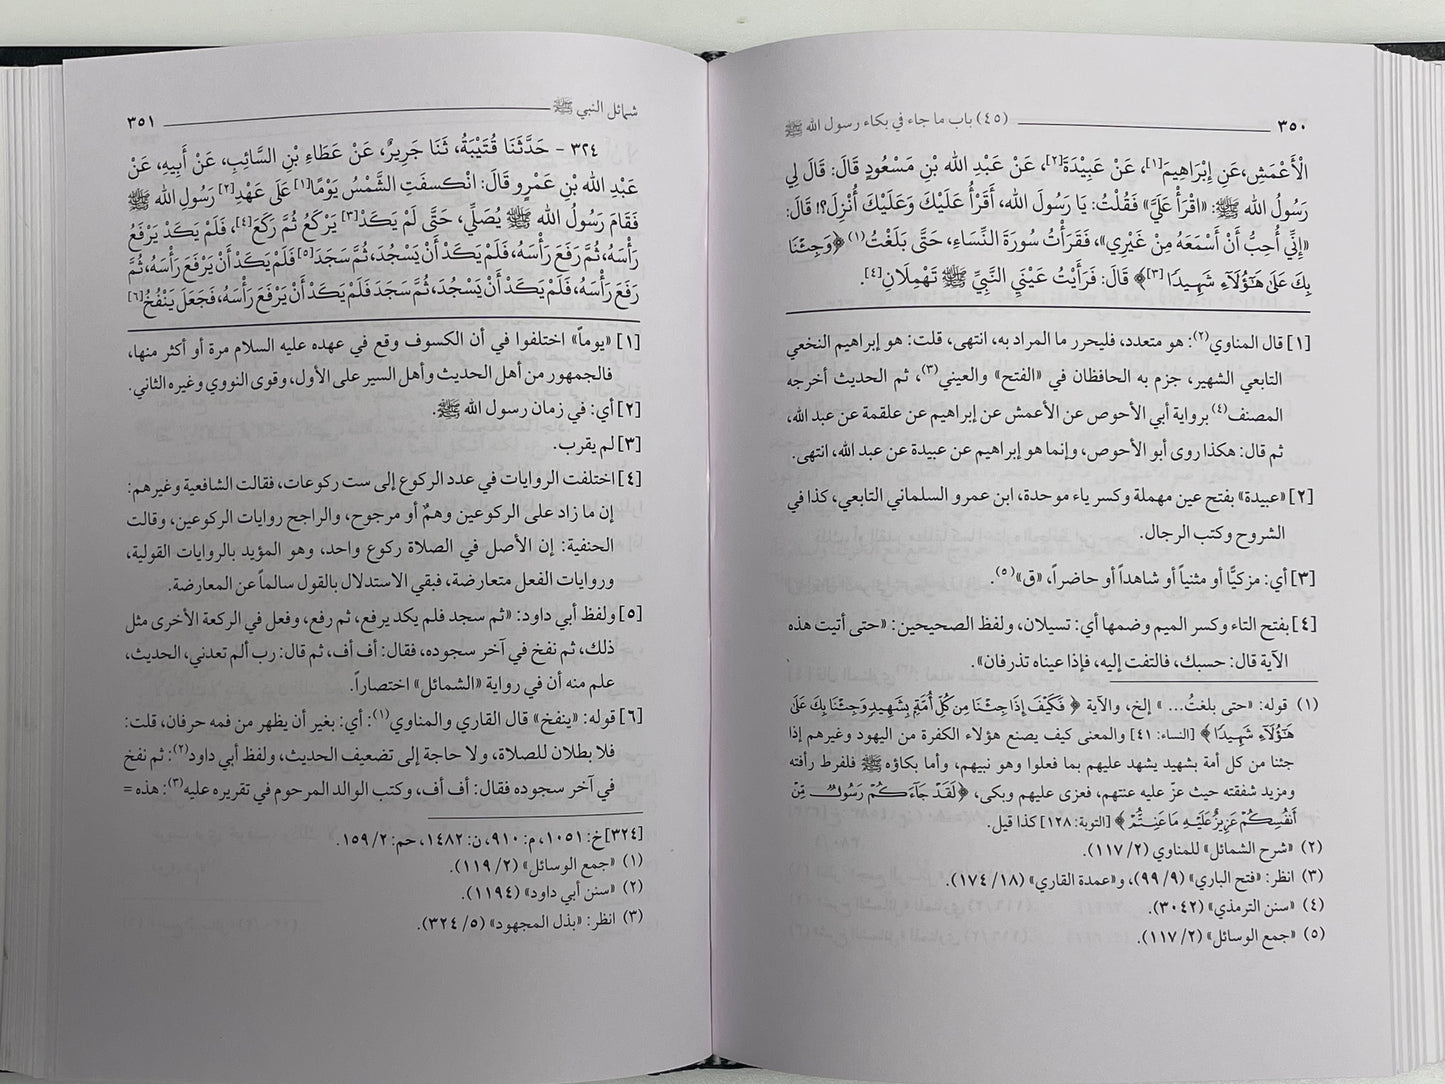 ٣٥٠ (٤٥) باب ما جاء في بكاء رسول الله ﷺ
الْأَعْمَشِ، عَنِ إِبْرَاهِيمَ[١]، عَنْ عَبِيْدَةَ[٢]، عَنْ عَبْدِ الله بْنِ مَسْعُودٍ قَالَ: قَالَ لِي
رَسُولُ الله ﷺ: «اقْرَأْ عَلَيَّ» فَقُلْتُ: يَا رَسُولَ الله، أَقْرَأُ عَلَيْكَ وَعَلَيْكَ أُنْزِلَ؟! قَالَ:
«إِنِّي أُحِبُّ أَنْ أَسْمَعَهُ مِنْ غَيْرِي»، فَقَرَأْتُ سُورَةَ النِّسَاءِ، حَتَّى بَلَغْتُ(١) ﴿وَجِئْنَا
بِكَ عَلَىٰ هَٰٓؤُلَآءِ شَهِيدًا[٣]﴾ قَالَ: فَرَأَيْتُ عَيْنَيِ النَّبِيِّ ﷺ تَهْمِلَانِ[٤].
[١] قال المناوي(٢): هو متعدد، فليحرر ما المراد به، انتهى، قلت: هو إبراهيم النخعي
التابعي الشهير، جزم به الحافظان في «الفتح» والعيني(٣)، ثم الحديث أخرجه
المصنف(٤) برواية أبي الأحوص عن الأعمش عن إبراهيم عن علقمة عن عبد الله،
ثم قال: هكذا روى أبو الأحوص، وإنما هو إبراهيم عن عبيدة عن عبد الله، انتهى.
[٢] «عبيدة» بفتح عين مهملة وكسر ياء موحدة، ابن عمرو السلماني التابعي، كذا في
الشروح وكتب الرجال.
[٣] أي: مزكيًّا أو مثنياً أو شاهداً أو حاضراً، «ق»(٥).
[٤] بفتح التاء وكسر الميم وضمها أي: تسيلان، ولفظ الصحيحين: «حتى أتيت هذه
الآية قال: حسبك، فالتفت إليه، فإذا عيناه تذرفان».
(١) قوله: «حتى بلغتُ... » إلخ، والآية ﴿ فَكَيْفَ إِذَا جِئْنَا مِن كُلِّ أُمَّةٍۭ بِشَهِيدٍ وَجِئْنَا بِكَ عَلَىٰ
هَٰٓؤُلَآءِ شَهِيدًا ﴾ [النساء: ٤١] والمعنى كيف يصنع هؤلاء الكفرة من اليهود وغيرهم إذا
جئنا من كل أمة بشهيد يشهد عليهم بما فعلوا وهو نبيهم، وأما بكاؤه ﷺ فلفرط رأفته
ومزيد شفقته حيث عزّ عليه عنتهم، فعزى عليهم وبكى، ﴿لَقَدْ جَآءَكُمْ رَسُولٌ مِّنْ
أَنفُسِكُمْ عَزِيزٌ عَلَيْهِ مَا عَنِتُّمْ ﴾ [التوبة: ١٢٨] كذا قيل.
(٢) «شرح الشمائل» للمناوي (٢/ ١١٧).
(٣) انظر: «فتح الباري» (٩/ ٩٩)، و«عمدة القاري» (١٨/ ١٧٤).
(٤) «سنن الترمذي» (٣٠٤٢).
(٥) «جمع الوسائل» (٢/ ١١٧).
شمائل النبي ﷺ ٣٥١
٣٢٤ - حَدَّثَنَا قُتَيْبَةُ، ثَنَا جَرِيرٌ، عَنْ عَطَاءِ بْنِ السَّائِبِ، عَنْ أَبِيهِ، عَنْ
عَبْدِ الله بْنِ عَمْرٍو قَالَ: انْكَسفَتِ الشَّمْسُ يَوْمًا[١] عَلَى عَهْدِ[٢] رَسُولِ الله ﷺ
فَقَامَ رَسُولُ الله ﷺ يُصَلِّي، حَتَّى لَمْ يَكَدْ[٣] يَرْكَعُ ثُمَّ رَكَعَ[٤]، فَلَمْ يَكَدْ يَرْفَعُ
رَأْسَهُ، ثُمَّ رَفَعَ رَأْسَهُ، فَلَمْ يَكَدْ أَنْ يَسْجُدَ، ثُمَّ سَجَدَ[٥] فَلَمْ يَكَدْ أَنْ يَرْفَعَ رَأْسَهُ، ثُمَّ
رَفَعَ رَأْسَهُ، فَلَمْ يَكَدْ أَنْ يَسْجُدَ، ثُمَّ سَجَدَ فَلَمْ يَكَدْ أَنْ يَرْفَعَ رَأْسَهُ، فَجَعَلَ يَنْفُخُ[٦]
[١] «يوماً» اختلفوا في أن الكسوف وقع في عهده عليه السلام مرة أو أكثر منها،
فالجمهور من أهل الحديث وأهل السير على الأول، وقوى النووي وغيره الثاني.
[٢] أي: في زمان رسول الله ﷺ.
[٣] لم يقرب.
[٤] اختلفت الروايات في عدد الركوع إلى ست ركوعات، فقالت الشافعية وغيرهم:
إن ما زاد على الركوعين وهمٌ أو مرجوح، والراجح روايات الركوعين، وقالت
الحنفية: إن الأصل في الصلاة ركوع واحد، وهو المؤيد بالروايات القولية،
وروايات الفعل متعارضة، فبقي الاستدلال بالقول سالماً عن المعارضة.
[٥] ولفظ أبي داود: «ثم سجد فلم يكد يرفع، ثم رفع، وفعل في الركعة الأخرى مثل
ذلك، ثم نفخ في آخر سجوده، فقال: أف أف، ثم قال: رب ألم تعدني، الحديث،
علم منه أن في رواية «الشمائل» اختصاراً.
[٦] قوله: «ينفخ» قال القاري والمناوي(١): أي: بغير أن يظهر من فمه حرفان، قلت:
فلا بطلان للصلاة، ولا حاجة إلى تضعيف الحديث، ولفظ أبي داود(٢): ثم نفخ
في آخر سجوده فقال: أف أف، وكتب الوالد المرحوم في تقريره عليه(٣): هذه =
[٣٢٤] خ: ١٠٥١، م: ٩١٠، ن: ١٤٨٢، حم: ٢/ ١٥٩.
(١) «جمع الوسائل» (٢/ ١١٩).
(٢) «سنن أبي داود» (١١٩٤).
(٣) انظر: «بذل المجهود» (٥/ ٣٢٤).